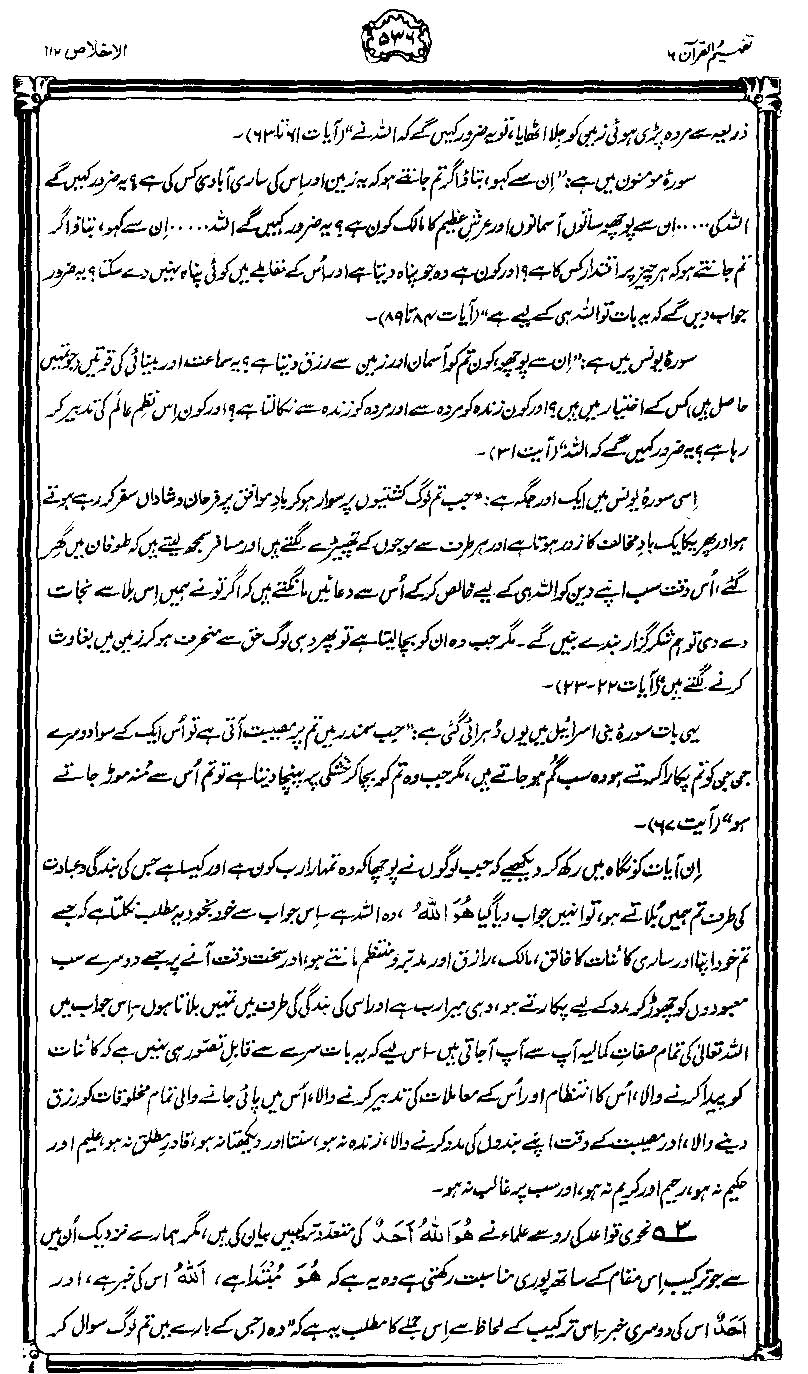 تفہیم القرآن ۶
۵۳۶
الاخلاص ۱۱۲
ذریعہ سے مردہ پڑی ہوئی زمین کو جلا اٹھایا، تو یہ ضرور کہیں گے کہ اللہ نے“ (آیات ۶۱ تا ۶۳)۔
سورۂ مومنون میں ہے: ”اِن سے کہو، بتاؤ اگر تم جانتے ہو کہ یہ زمین اور اِس کی ساری آبادی کس کی ہے؟ یہ ضرور کہیں گے
اللہ کی ..... ان سے پوچھو ساتوں آسمانوں اور عرشِ عظیم کا مالک کون ہے؟ یہ ضرور کہیں گے اللہ ..... اِن سے کہو، بتاؤ اگر
تم جانتے ہو کہ ہر چیز پر اقتدار کس کا ہے؟ اور کون ہے وہ جو پناہ دیتا ہے اور اُس کے مقابلے میں کوئی پناہ نہیں دے سکتا؟ یہ ضرور
جواب دیں گے کہ یہ بات تو اللہ ہی کے لیے ہے“ (آیات ۸۴ تا ۸۹)۔
سورۂ یونس میں ہے: ”اِن سے پوچھو، کون تم کو آسمان اور زمین سے رزق دیتا ہے؟ یہ سماعت اور بینائی کی قوتیں (جو تمہیں
حاصل ہیں) کس کے اختیار میں ہیں؟ اور کون زندہ کو مردہ سے اور مردہ کو زندہ سے نکالتا ہے؟ اور کون اِس نظمِ عالم کی تدبیر کر
رہا ہے؟ یہ ضرور کہیں گے کہ اللہ“ (آیت ۳۱)۔
اِسی سورۂ یونس میں ایک اور جگہ ہے: ”جب تم لوگ کشتیوں پر سوار ہو کر بادِ موافق پر فرحان و شاداں سفر کر رہے ہوتے
ہو اور پھر یکایک بادِ مخالف کا زور ہوتا ہے اور ہر طرف سے موجوں کے تھپیڑے لگتے ہیں اور مسافر سمجھ لیتے ہیں کہ طوفان میں گھِر
گئے، اُس وقت سب اپنے دین کو اللہ ہی کے لیے خالص کر کے اُس سے دعائیں مانگتے ہیں کہ اگر تو نے ہمیں اِس بلا سے نجات
دے دی تو ہم شکر گزار بندے بنیں گے۔ مگر جب وہ ان کو بچا لیتا ہے تو پھر وہی لوگ حق سے منحرف ہو کر زمین میں بغاوت
کرنے لگتے ہیں“ (آیات ۲۲-۲۳)۔
یہی بات سورۂ بنی اسرائیل میں یوں دُہرائی گئی ہے: ”جب سمندر میں تم پر مصیبت آتی ہے تو اُس ایک کے سوا دوسرے
جن جن کو تم پکارا کرتے ہو وہ سب گم ہو جاتے ہیں، مگر جب وہ تم کو بچا کر خشکی پر پہنچا دیتا ہے تو تم اُس سے مُنہ موڑ جاتے
ہو“ (آیت ۶۷)۔
اِن آیات کو نگاہ میں رکھ کر دیکھیے کہ جب لوگوں نے پوچھا کہ وہ تمہارا رب کون ہے اور کیسا ہے جس کی بندگی و عبادت
کی طرف تم ہمیں بُلاتے ہو، تو انہیں جواب دیا گیا ھُوَ اللّٰہُ، وہ اللہ ہے۔ اِس جواب سے خود بخود یہ مطلب نکلتا ہے کہ جسے
تم خود اپنا اور ساری کائنات کا خالق، مالک، رازق اور مدبر و منتظم مانتے ہو، اور سخت وقت آنے پر جسے دوسرے سب
معبودوں کو چھوڑ کر مدد کے لیے پکارتے ہو، وہی میرا رب ہے اور اسی کی بندگی کی طرف میں تمہیں بلاتا ہوں۔ اِس جواب میں
اللہ تعالیٰ کی تمام صفاتِ کمالیہ آپ سے آپ آ جاتی ہیں۔ اس لیے کہ یہ بات سرے سے قابلِ تصور ہی نہیں ہے کہ کائنات
کو پیدا کرنے والا، اُس کا انتظام اور اُس کے معاملات کی تدبیر کرنے والا، اُس میں پائی جانے والی تمام مخلوقات کو رزق
دینے والا، اور مصیبت کے وقت اپنے بندوں کی مدد کرنے والا، زندہ نہ ہو، سنتا اور دیکھتا نہ ہو، قادرِ مطلق نہ ہو، علیم اور
حکیم نہ ہو، رحیم اور کریم نہ ہو، اور سب پر غالب نہ ہو۔
۳ـ نحوی قواعد کی رو سے علماء نے ھُوَ اللّٰہُ اَحَدٌ کی متعدد ترکیبیں بیان کی ہیں، مگر ہمارے نزدیک اُن میں
سے جو ترکیب اِس مقام کے ساتھ پوری مناسبت رکھتی ہے وہ یہ ہے کہ ھُوَ مُبتدا ہے، اَللّٰہُ اس کی خبر ہے، اور
اَحَدٌ اس کی دوسری خبر۔ اِس ترکیب کے لحاظ سے اِس جملے کا مطلب یہ ہے کہ ”وہ (جس کے بارے میں تم لوگ سوال کر